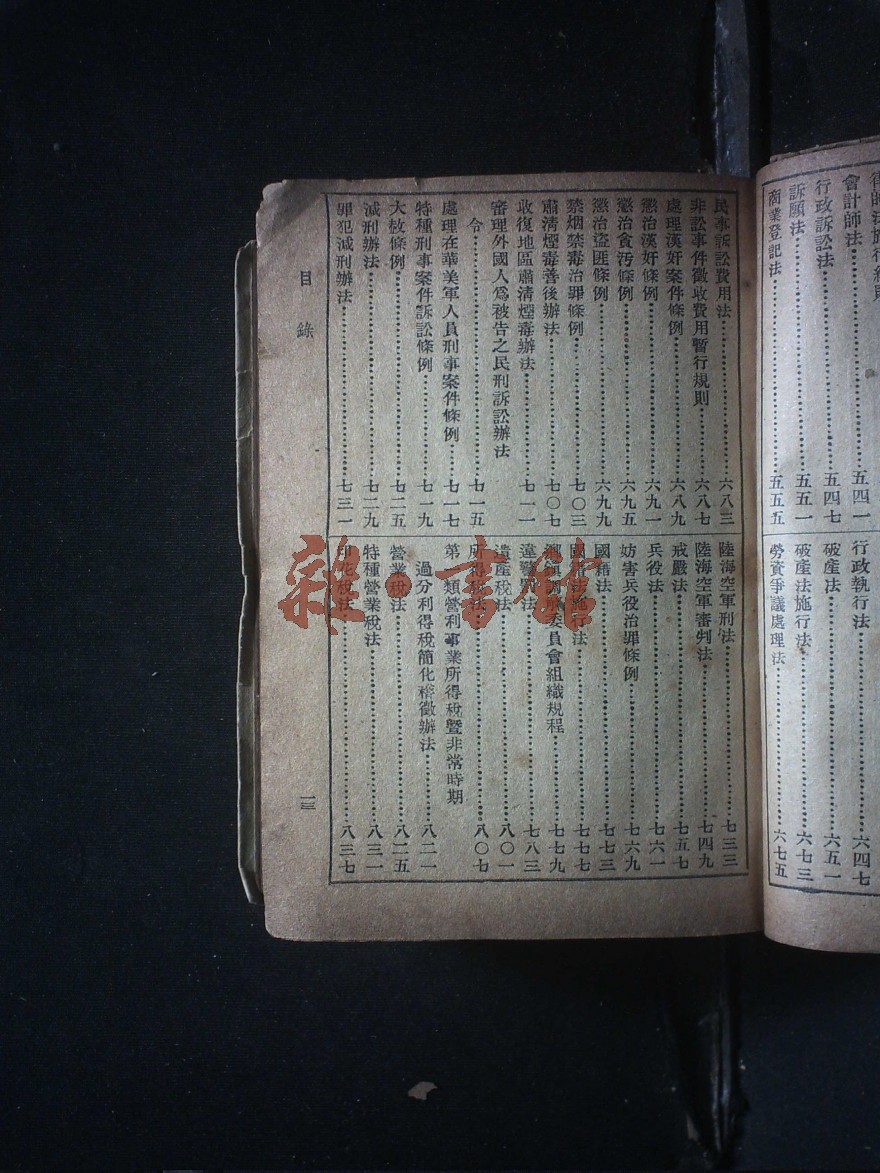 律師法施行細則
會計師法…………五四一
行政訴訟法…………五四七
訴願法…………五五一
商業登記法…………五五五
行政執行法…………六四七
破產法…………六五一
破產法施行法…………六七三
勞資爭議處理法…………六七五
民事訴訟費用法…………六八三
非訟事件徵收費用暫行規則…………六八七
處理漢奸案件條例…………六八九
懲治漢奸條例…………六九一
懲治貪汚條例…………六九五
懲治盜匪條例…………六九九
禁烟禁毒治罪條例…………七〇三
肅清煙毒善後辦法…………七〇七
收復地區肅清煙毒辦法…………七一一
審理外國人爲被告之民刑訴訟辦法
令…………七一五
處理在華美軍人員刑事案件條例…………七一七
特種刑事案件訴訟條例…………七一九
大赦條例…………七二五
減刑辦法…………七二九
罪犯減刑辦法…………七三一
陸海空軍刑法…………七三三
陸海空軍審判法…………七四九
戒嚴法…………七五七
兵役法…………七六一
妨害兵役治罪條例…………七六九
國籍法…………七七三
國籍法施行法…………七七七
鄉鎮調解委員會組織規程…………七七九
違警罰法…………七八三
遺產稅法…………八〇一
所得稅法…………八〇七
第一類營利事業所得稅曁非常時期
過分利得稅簡化稽徵辦法…………八二一
營業稅法…………八二五
特種營業稅法…………八三一
印花稅法…………八三七
目錄
一三
雜·書館